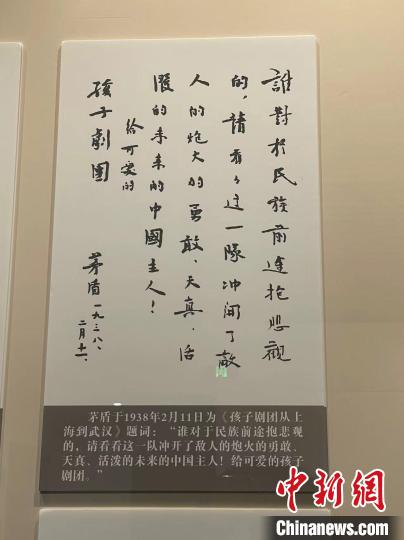 誰對於民族前途抱悲觀
的，請看々这一隊冲開了敵
人的炮火的勇敢、天真、活
潑的未来的中國主人！
给可爱的
孩子劇團
茅盾 一九三八、
二月十一、
茅盾于1938年2月11日为《孩子剧团从上
海到武汉》题词：“谁对于民族前途抱悲观
的，请看看这一队冲开了敌人的炮火的勇敢、
天真、活泼的未来的中国主人！给可爱的孩子
剧团。”
中新网
Chinanews.com